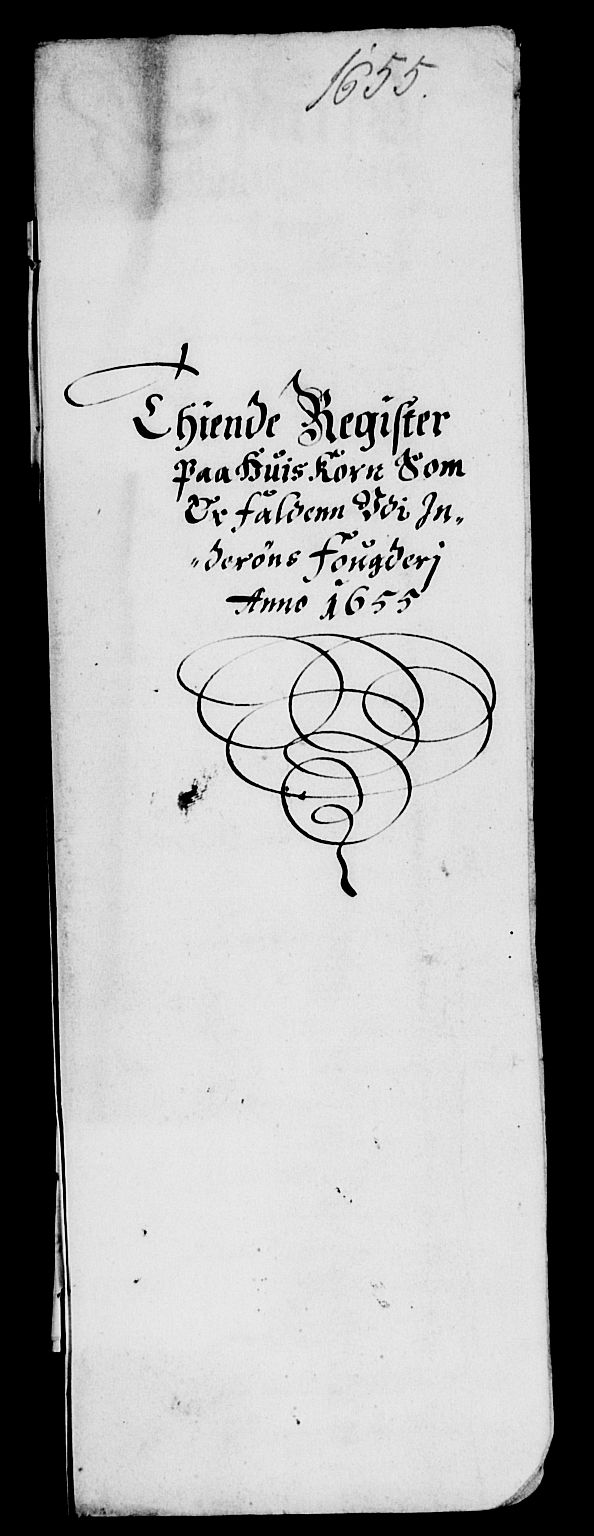 1655.
Thiende Register
Paa Huis Korn Som
Er faldenn Vdi In„
„derøns fougderj
Anno 1655